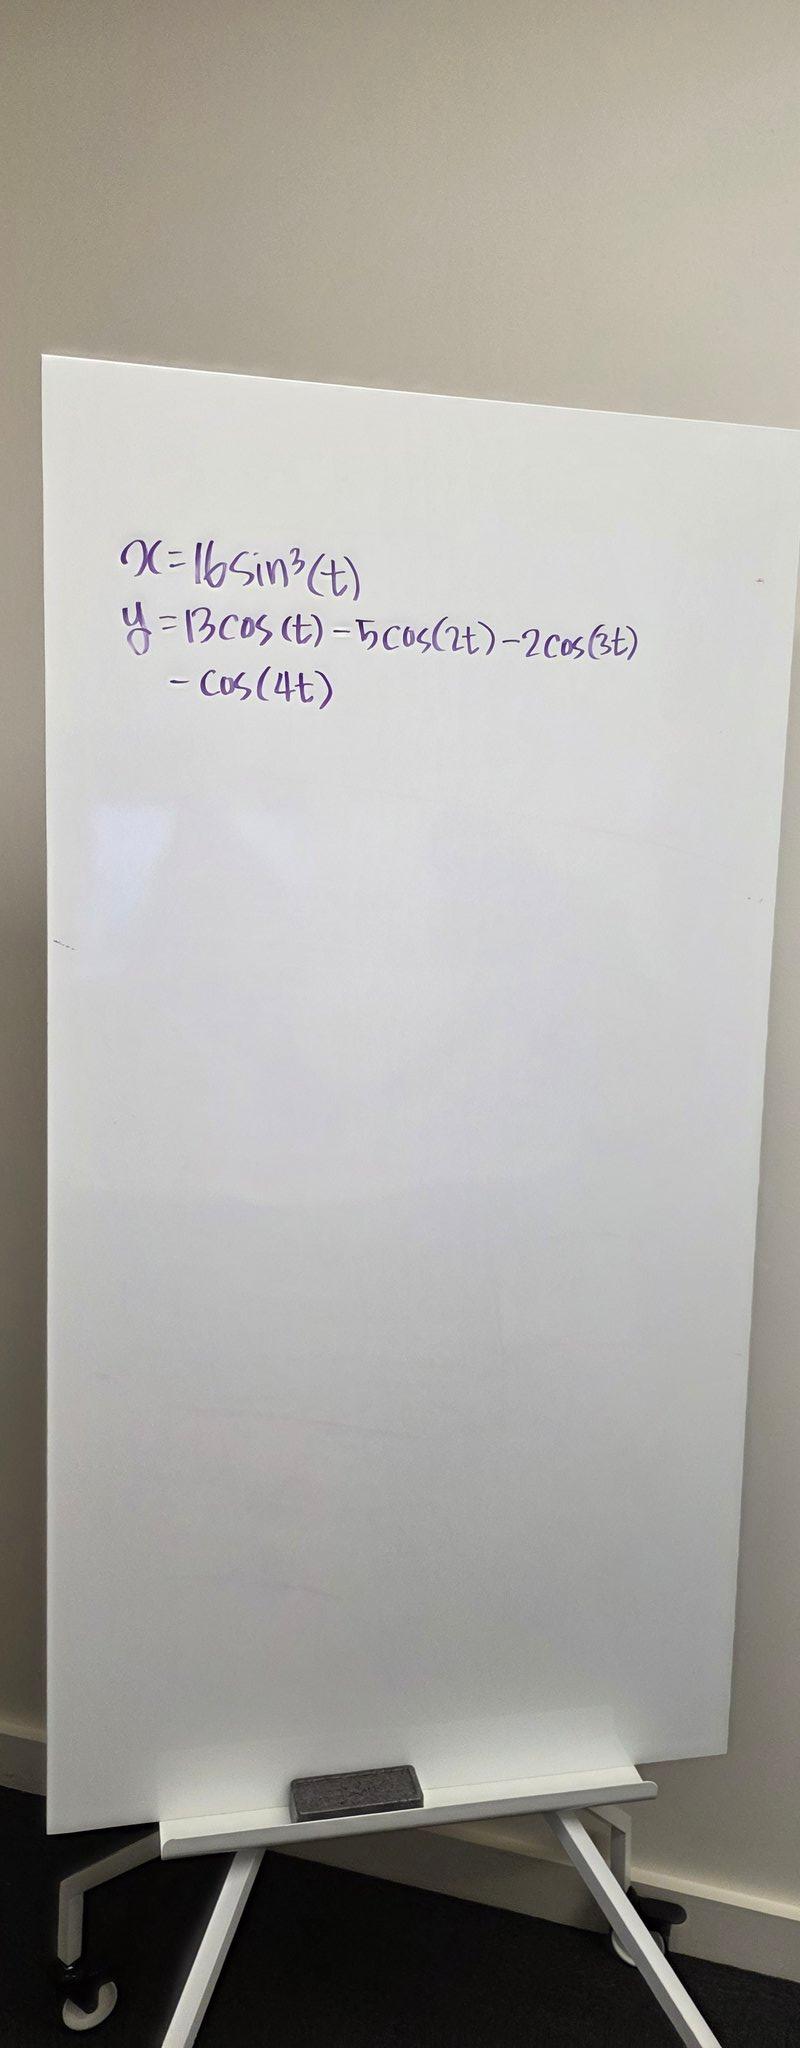 x=16sin³(t)
y=13cos(t)-5cos(2t)-2cos(3t)
-cos(4t)